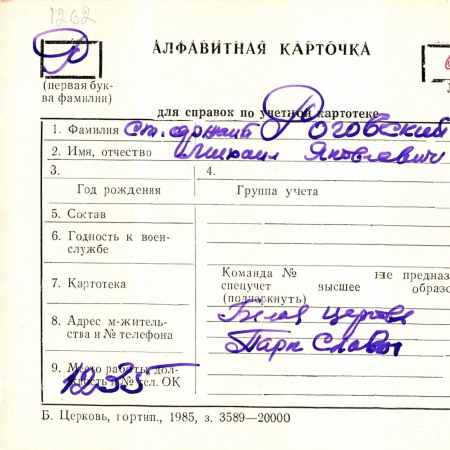 1202
Р
АЛФАВИТНАЯ КАРТОЧКА
(первая бук-
ва фамилии)
для справок по учетной картотеке
1. Фамилия ст. сержант Роговский
2. Имя, отчество Михаил Яковлевич
3.
4.
Год рождения
Группа учета
5. Состав
6. Годность к воен-
службе
7. Картотека
Команда № не предназ
спецучет высшее образо
(подчеркнуть)
8. Адрес м-житель-
ства и № телефона
Белая Церковь
Парк Славы
9. Место работы, дол-
жность и № тел. ОК
1235
Б. Церковь, гортип., 1985, з. 3589—20000